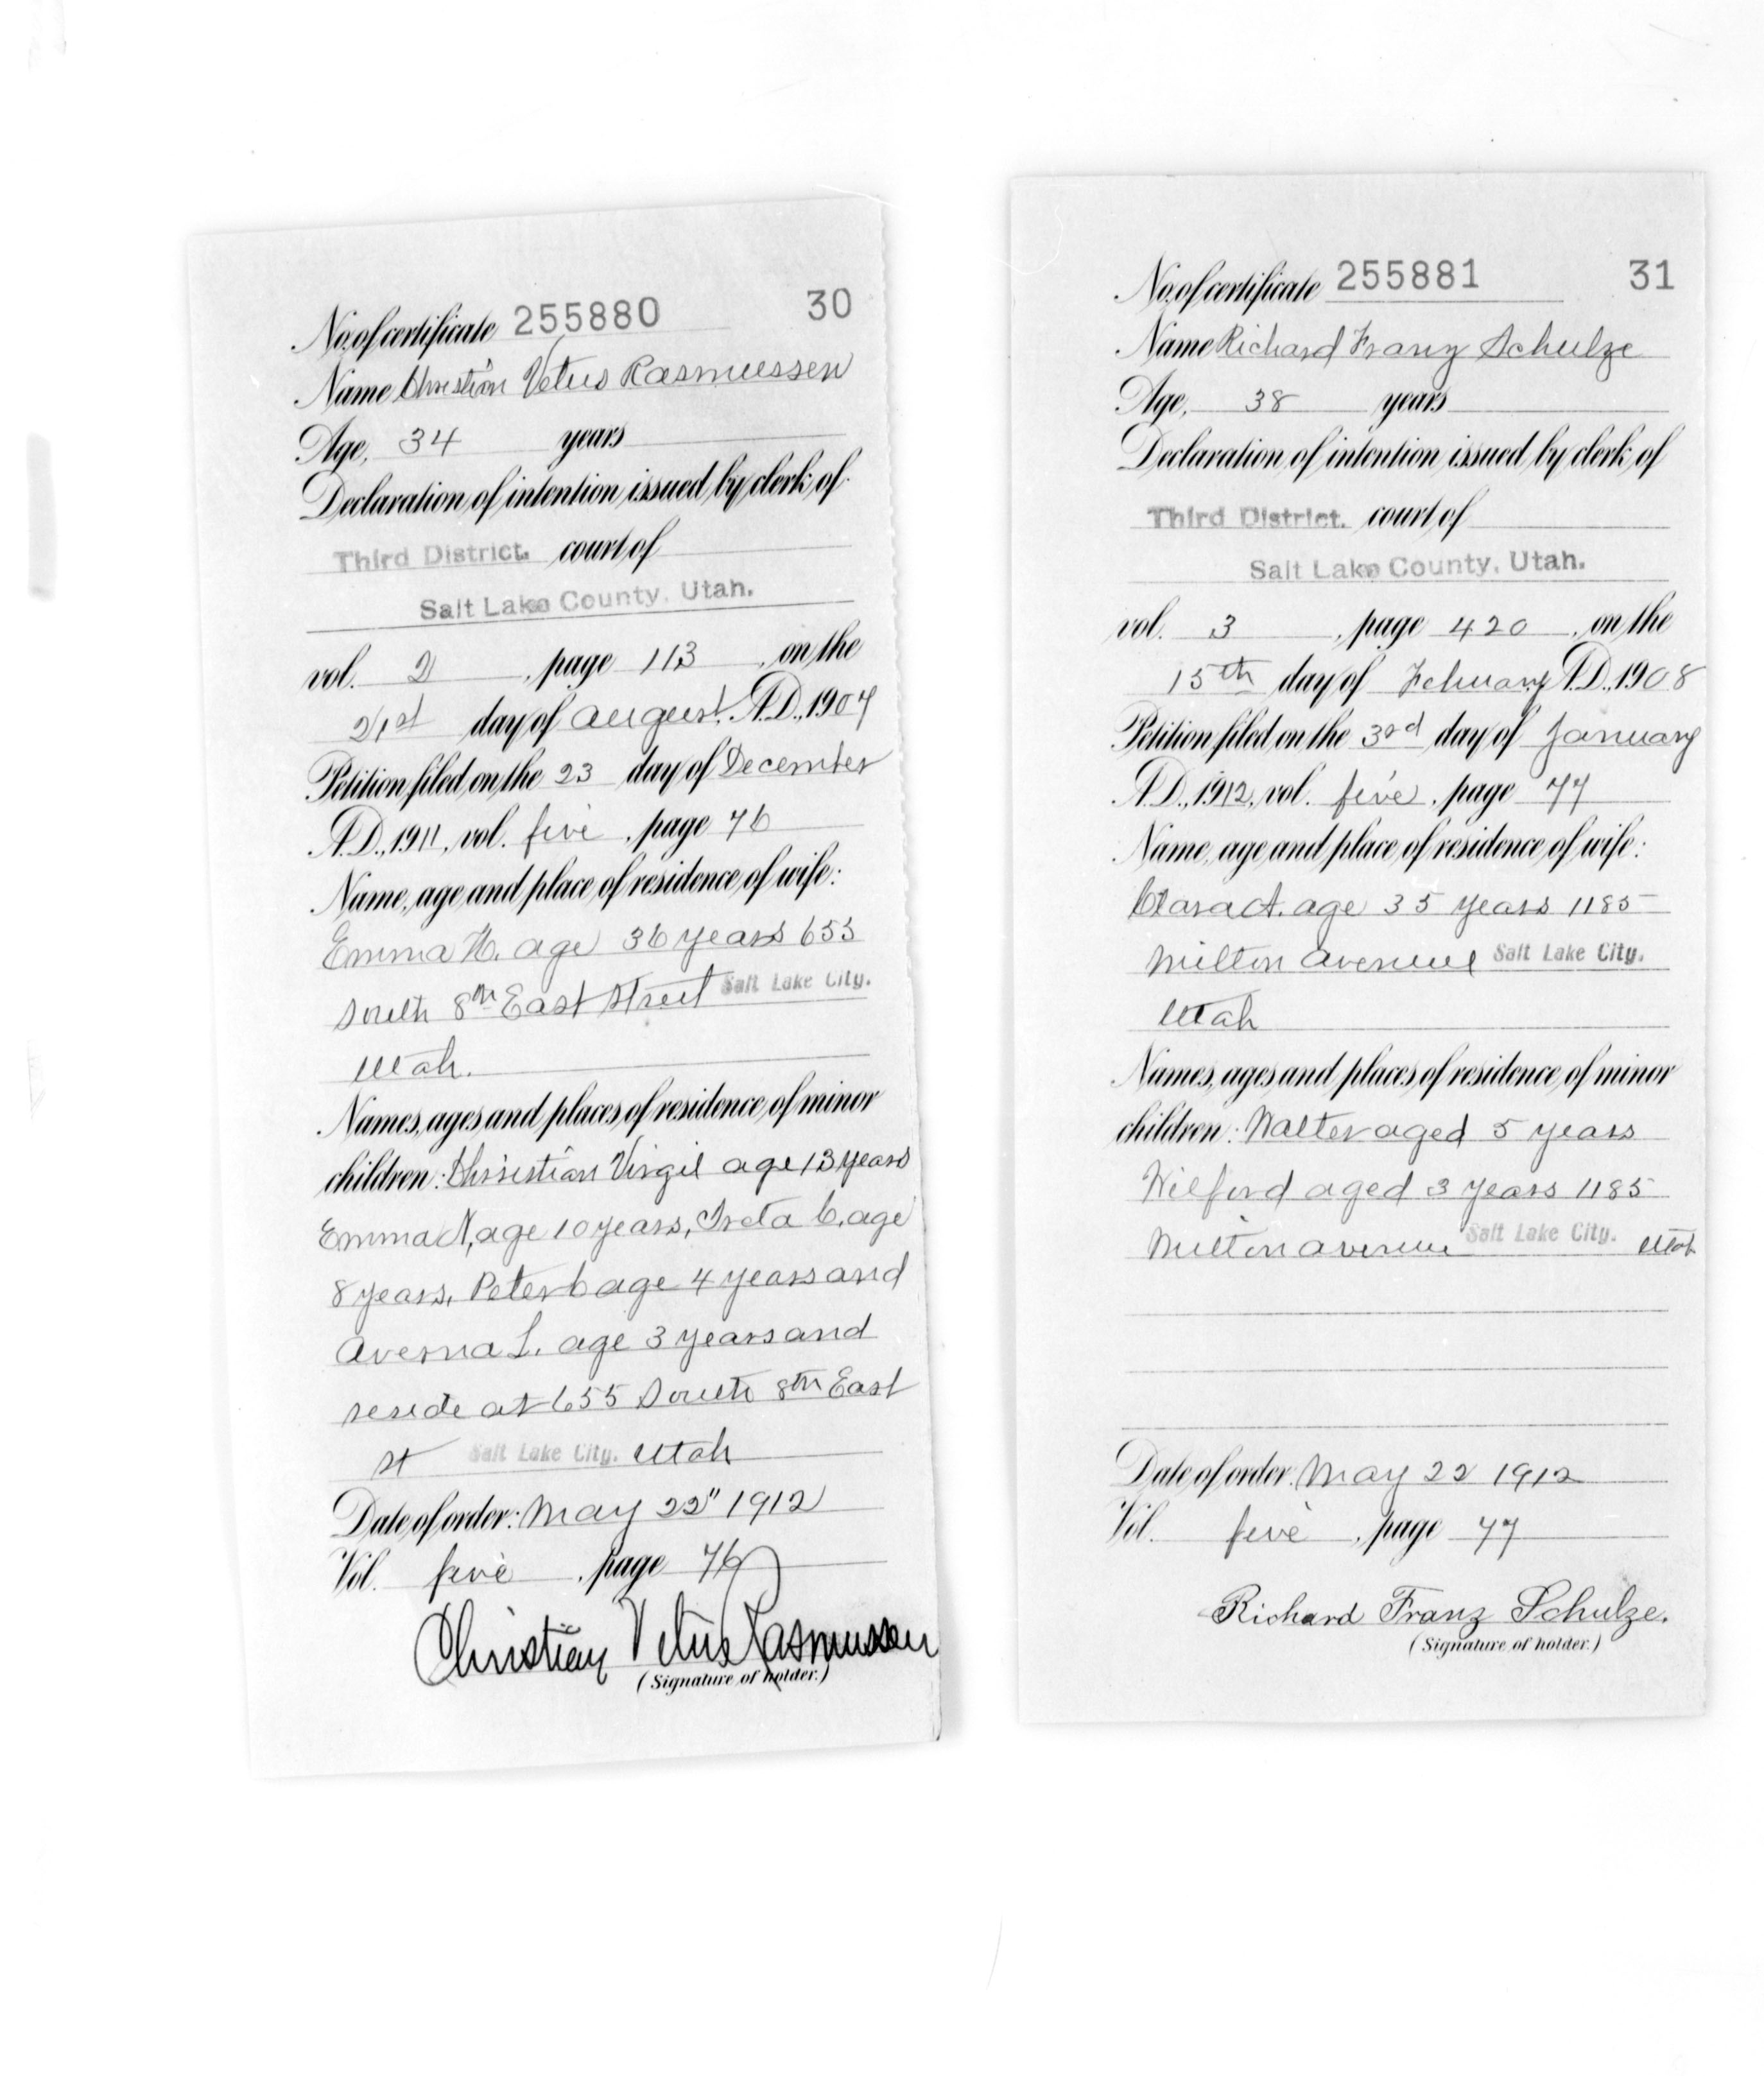 No. of certificate 255880 30
Name Christian Vetus Rasmussen
Age, 34 years
Declaration of intention issued by clerk of
Third District. court of
Salt Lake County, Utah.
vol. 2, page 113, on the
21st day of August A.D., 1907
Petition filed on the 23 day of December
A.D., 1911, vol. five, page 76
Name, age and place of residence of wife:
Emma H. age 36 years 655
South 8th East Street Salt Lake City.
Utah.
Names, ages and places of residence of minor
children: Christian Virgil age 13 years
Emma N, age 10 years, C. age
8 years, Peter C age 4 years and
Averna L. age 3 years and
reside at 655 South 8th East
St Salt Lake City. Utah
Date of order: May 22" 1912
Vol. five, page 76
Christian Vetus Rasmussen
(Signature of holder.)
No. of certificate 255881 31
Name Richard Franz Schulze
Age, 38 years
Declaration of intention issued by clerk of
Third District. court of
Salt Lake County, Utah.
vol. 3, page 420, on the
15th day of February A.D., 1908
Petition filed on the 3rd day of January
A.D., 1912, vol. five, page 77
Name, age and place of residence of wife:
Clara A. age 35 years 1185
Milton Avenue Salt Lake City.
Utah
Names, ages and places of residence of minor
children: Walter aged 5 years
Wilford aged 3 years 1185
Milton avenue Salt Lake City. Utah
Date of order: May 22 1912
Vol. five, page 77
Richard Franz Schulze.
(Signature of holder.)